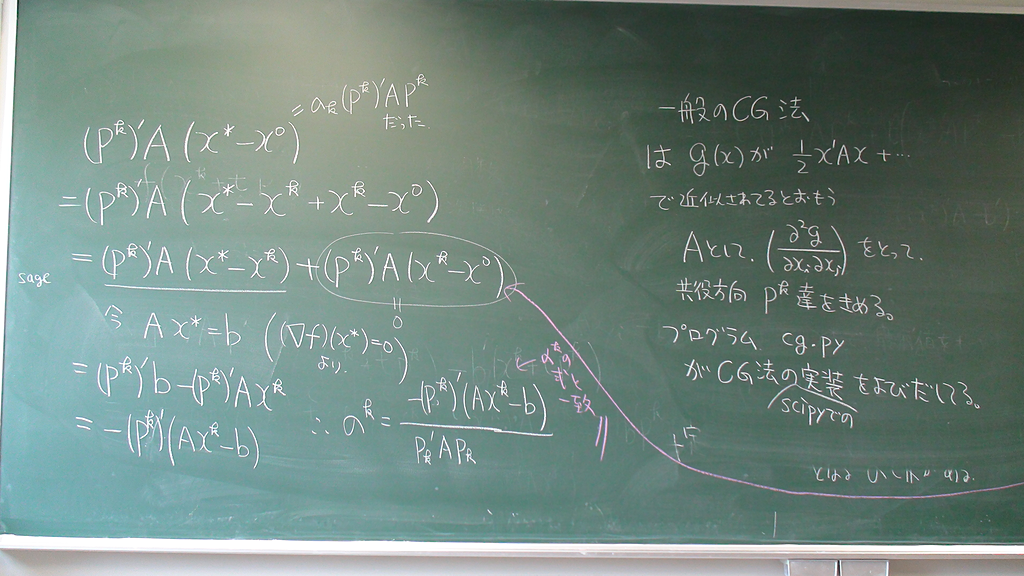 = a_k (p^k)'Ap^k
だった
(p^k)'A (x* − x^0)
= (p^k)'A (x* − x^k + x^k − x^0)
= (p^k)'A (x* − x^k) + (p^k)'A (x^k − x^0)
= 0
sage
今 Ax* = b ((∇f)(x*) = 0 より.)
= (p^k)'b − (p^k)'Ax^k
= −(p^k)'(Ax^k − b)
∴ a^k = −(p^k)'(Ax^k − b) / p'_k A p_k
← α^kの
式と
一致
一般のCG法
は g(x)が 1/2 x'Ax + …
で近似されてるとおもう
Aとして, (∂²g/∂x_i∂x_j) をとって,
共役方向 p^k 達をきめる。
プログラム cg.py
がCG法の実装をよびだしてる。
scipyでの